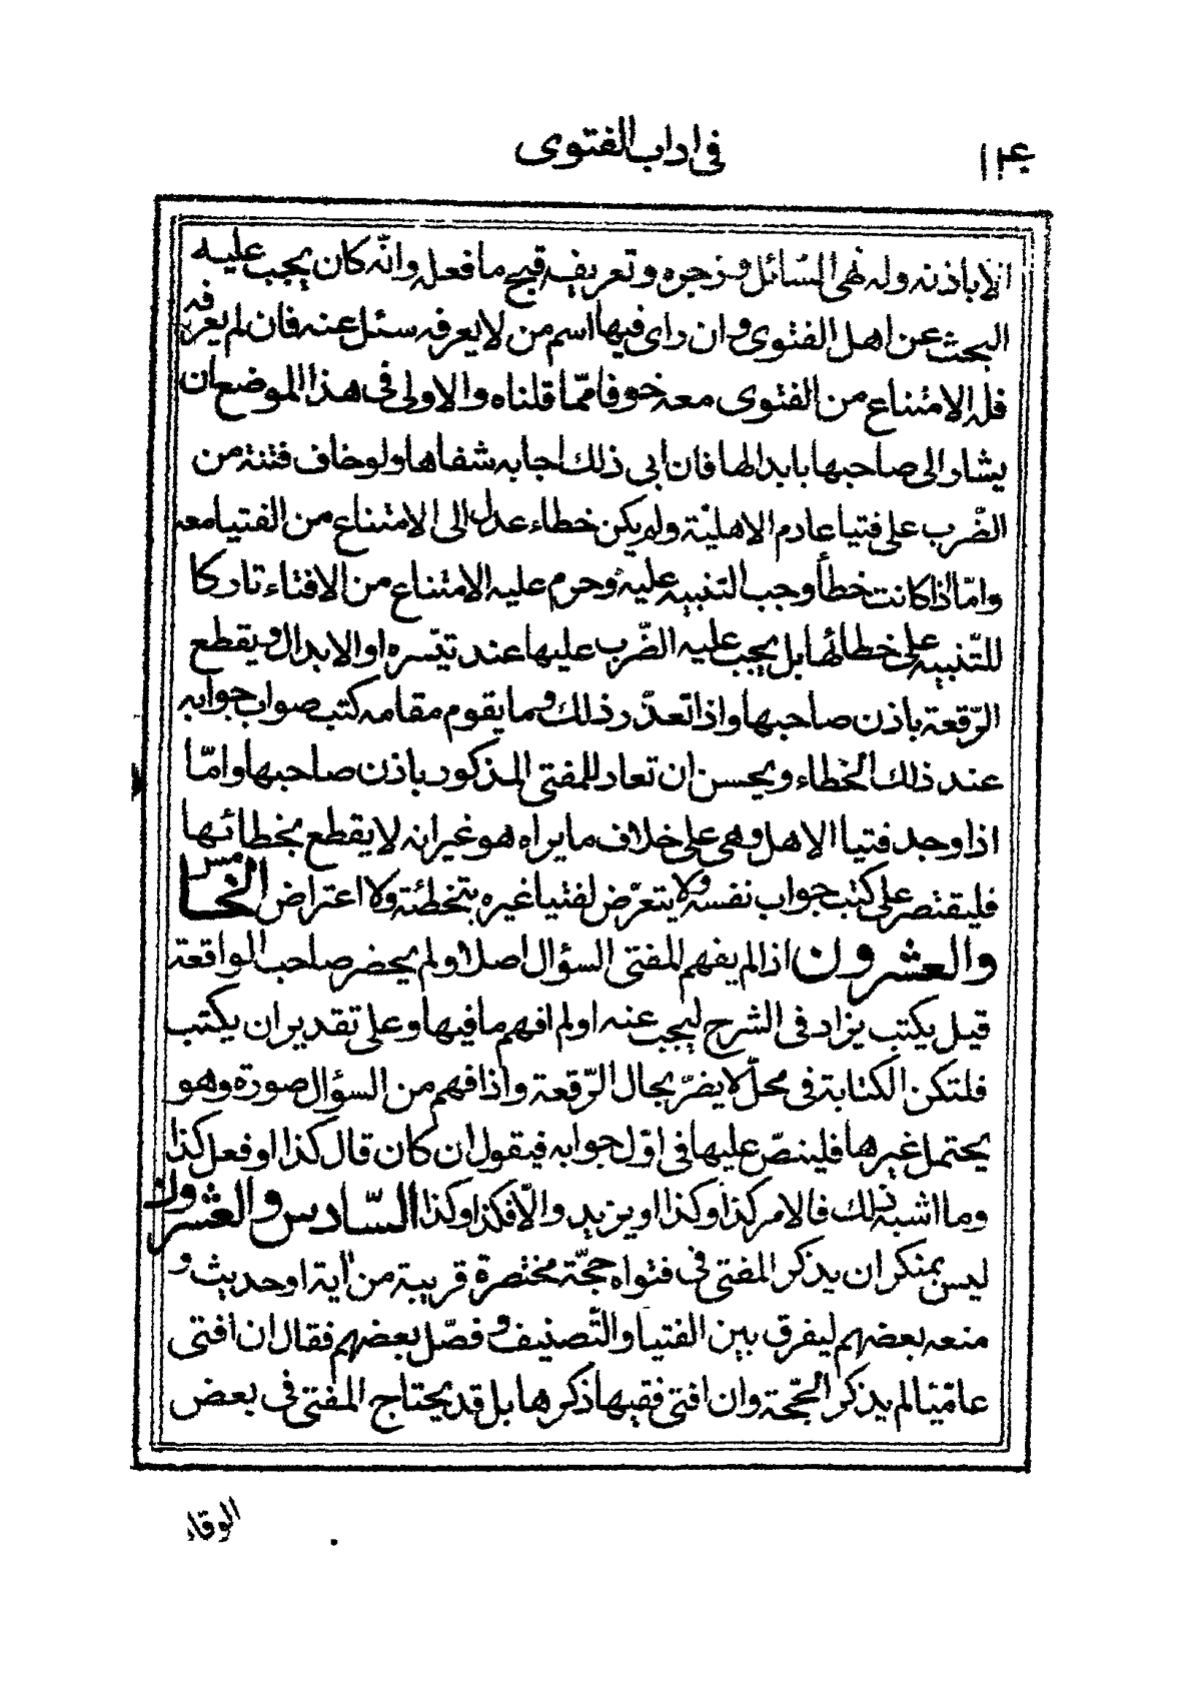 ١٣٤
فی اداب الفتوی
الّا باذنه وله نهی السّائل و زجره و تعریفه قبح ما فعل وانّه کان یجب علیه
البحث عن اهل الفتوی و ان رای فیها اسم من لا یعرفه سئل عنه فان لم یعرفه
فله الامتناع من الفتوی معه خوفا ممّا قلناه والاولی فی هذا الموضع ان
یشار الی صاحبها بابدالها فان ابی ذلک اجابه شفاها ولو خاف فتنة من
الضّرب علی فتیا عادم الاهلیّة ولم یکن خطاء عدل الی الامتناع من الفتیا معه
وامّا اذا کانت خطأ وجب التنبیه علیه وحرم علیه الامتناع من الافتاء تارکا
للتّنبیه علی خطائها بل یجب علیه الضّرب علیها عند تیسّره او الابدال و یقطع
الرّقعة باذن صاحبها واذا تعذّر ذلک وما یقوم مقامه کتب صواب جوابه
عند ذلک الخطاء ویحسن ان تعاد للمفتی المذکور باذن صاحبها وامّا
اذا وجد فتیا الاهل وهی علی خلاف ما یراه هو غیر انه لا یقطع بخطائها
فلیقتصر علی کتب جواب نفسه ولا یتعرّض لفتیا غیره بتخطئة ولا اعتراض الخامس
والعشرون اذا لم یفهم المفتی السؤال اصلا ولم یحضر صاحب الواقعة
قیل یکتب یزاد فی الشرح لیجب عنه او لم افهم ما فیها وعلی تقدیر ان یکتب
فلتکن الکتابة فی محلّ لا یضرّ بحال الرّقعة واذا فهم من السؤال صورة وهو
یحتمل غیرها فلینصّ علیها فی اوّل جوابه فیقول ان کان قال کذا او فعل کذا
وما اشبه ذلک فالامر کذا وکذا او یزید والّا فکذا وکذا السّادس والعشرون
لیس بمنکر ان یذکر المفتی فی فتواه حجّة مختصرة قریبة من آیة او حدیث و
منعه بعضهم لیفرق بین الفتیا والتّصنیف و فصّل بعضهم فقال ان افتی
عامّیّا لم یذکر الحجّة وان افتی فقیها ذکرها بل قد یحتاج المفتی فی بعض
الوقائع